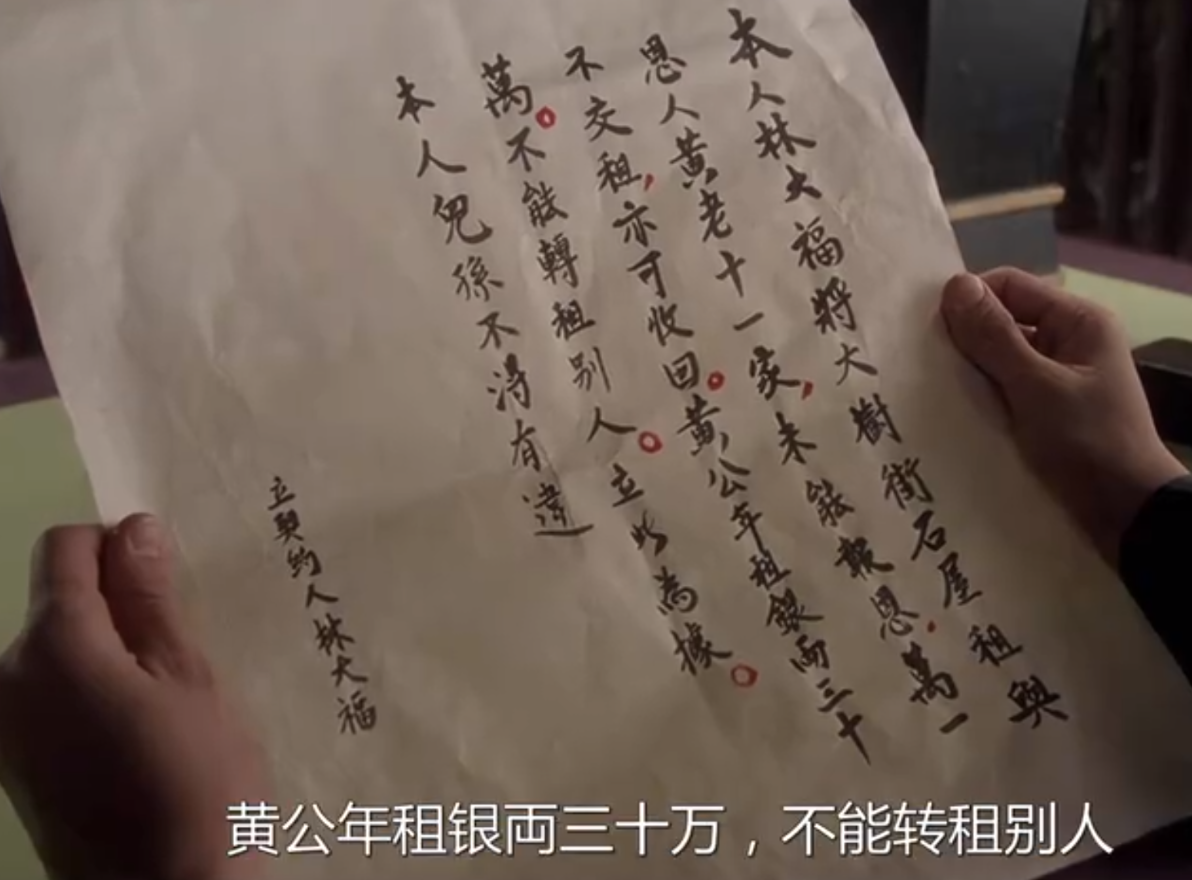 本人林大福將大樹街石屋租與
恩人黃老十一家，未能報恩．萬一
不交租，亦可收回。黃公年租銀両三十
萬。不能轉租别人。立此為據。
本人兒孫不得有違
立契約人林大福
黄公年租银両三十万，不能转租别人